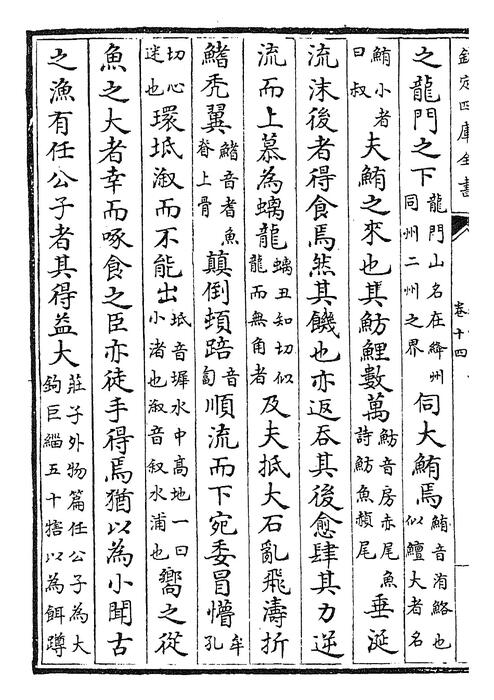 欽定四庫全書
卷十四
之龍門之下龍門山名在絳州同州二州之界伺大鮪焉鮪音洧鮥也似鱣大者名
鮪小者曰叔夫鮪之來也其魴鯉數萬魴音房赤尾魚詩魴魚赬尾垂涎
流沫後者得食焉然其饑也亦返吞其後愈肆其力逆
流而上慕為螭龍螭丑知切似龍而無角者及夫抵大石亂飛濤折
鰭禿翼鰭音耆魚脊上骨顛倒頓踣音匐順流而下宛委冒懵牟孔
切心迷也環坻溆而不能出坻音墀水中高地一曰小渚也溆音叙水浦也嚮之從
魚之大者幸而啄食之臣亦徒手得焉猶以為小聞古
之漁有任公子者其得益大莊子外物篇任公子為大鉤巨緇五十犗以為餌蹲